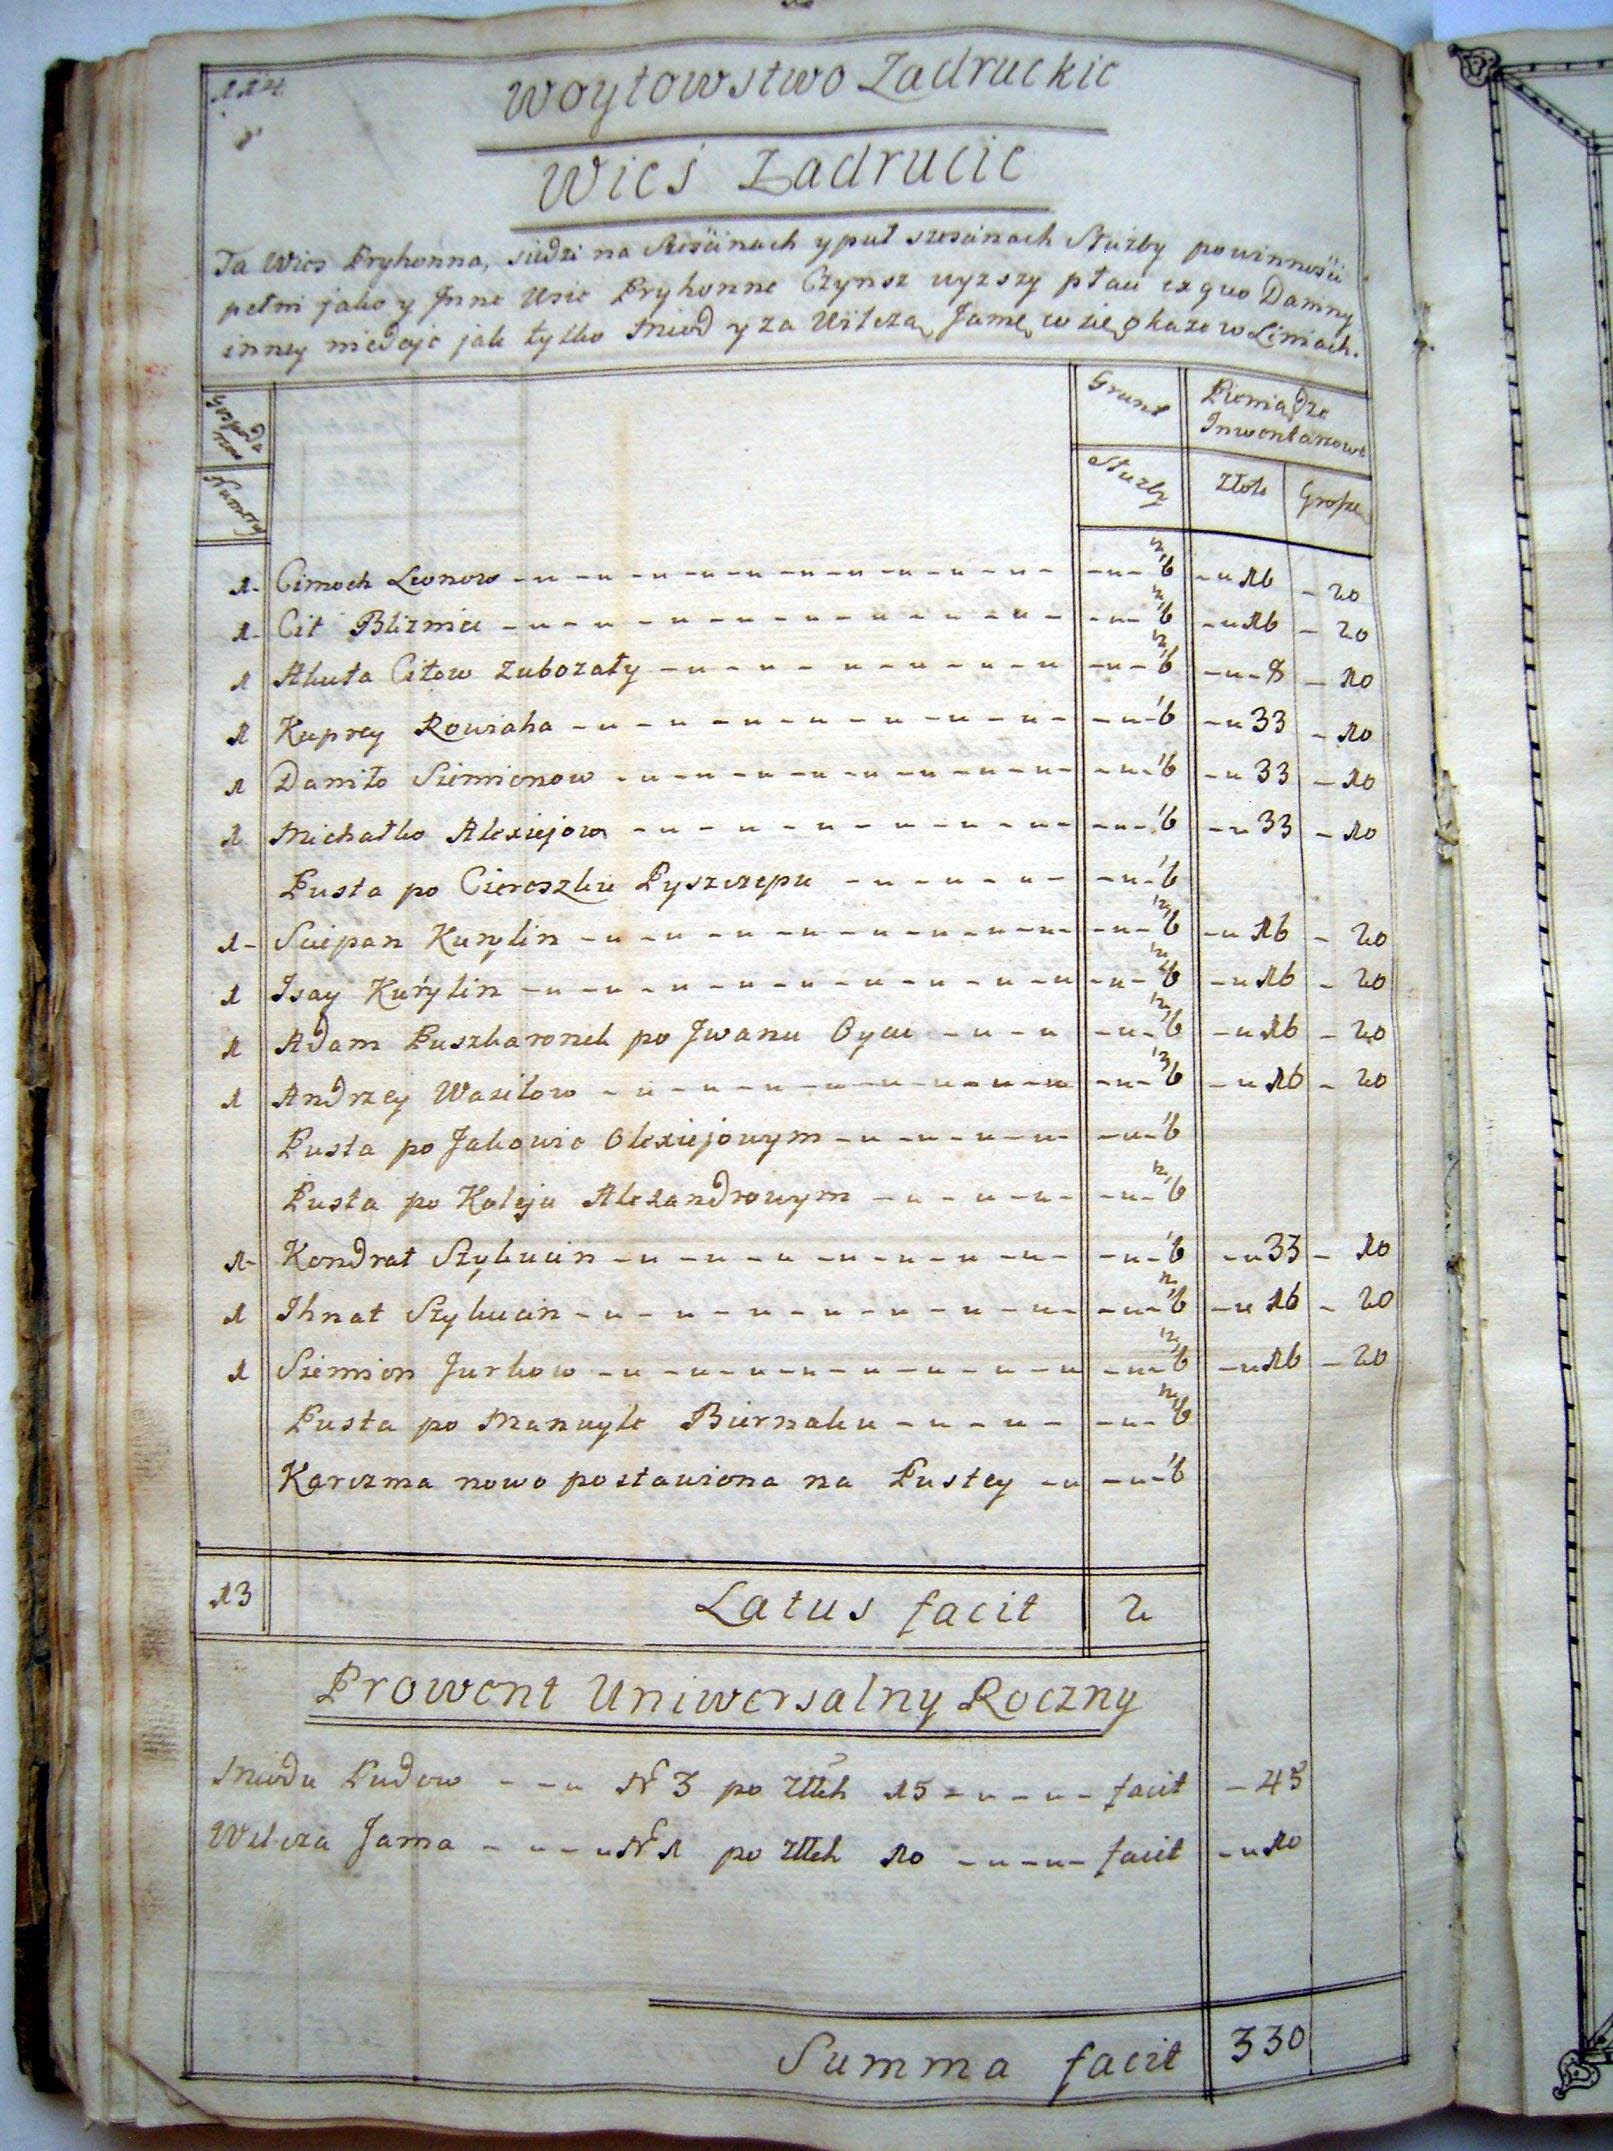 114
Woytowstwo Zadruckie
Wieś Zadrucie
Ta Wies Pryhonna, siedzi na Szescinach y puł szescinach Służby powinności
pełni jako y Inne Wsie Pryhonne Czynsz wyzszy płaci ex quo Daniny
inney niedaje jak tylko Miod y za Wilczą Jamę w się okaze w Liniach.
Gospoda
rze
Numery
Grunt
Służby
Pieniądze
Inwentarzowe
Złote
Grosze
1 - Cimoch Leonow - 1/2 1/6 - 16 - 20
1 - Cit Blizniec - 1/2 1/6 - 16 - 20
1 Akuła Citow Zubozały - 1/2 1/6 - 8 - 10
1 Kuprey Rowiaha - 1/6 - 33 - 10
1 Daniło Siemionow - 1/6 - 33 - 10
1 Michałko Alexiejow - 1/6 - 33 - 10
Pusta po Cieroszkie Pyszczepie - 1/6
1 - Sciepan Kurylin - 1/2 1/6 - 16 - 20
1 Isay Kurylin - 1/2 1/6 - 16 - 20
1 Adam Puszkaronek po Jwanu Oycu - 1/2 1/6 - 16 - 20
1 Andrzey Wasilow - 1/2 1/6 - 16 - 20
Pusta po Jakowie Olexiejowym - 1/6
Pusta po Koleju Alexandrowym - 1/2 1/6
1 - Kondrat Szykucin - 1/6 - 33 - 10
1 Ihnat Szykucin - 1/2 1/6 - 16 - 20
1 Siemion Jurkow - 1/2 1/6 - 16 - 20
Pusta po Manuyle Biernaku - 1/2 1/6
Karczma nowo postawiona na Pustey - 1/6
13 Latus facit 2
Prowent Uniwersalny Roczny
Miodu Pudow - No 3 po Złłch 15 - facit - 45
Wilcza Jama - No 1 po Złłch 10 - facit - 10
Summa facit 330